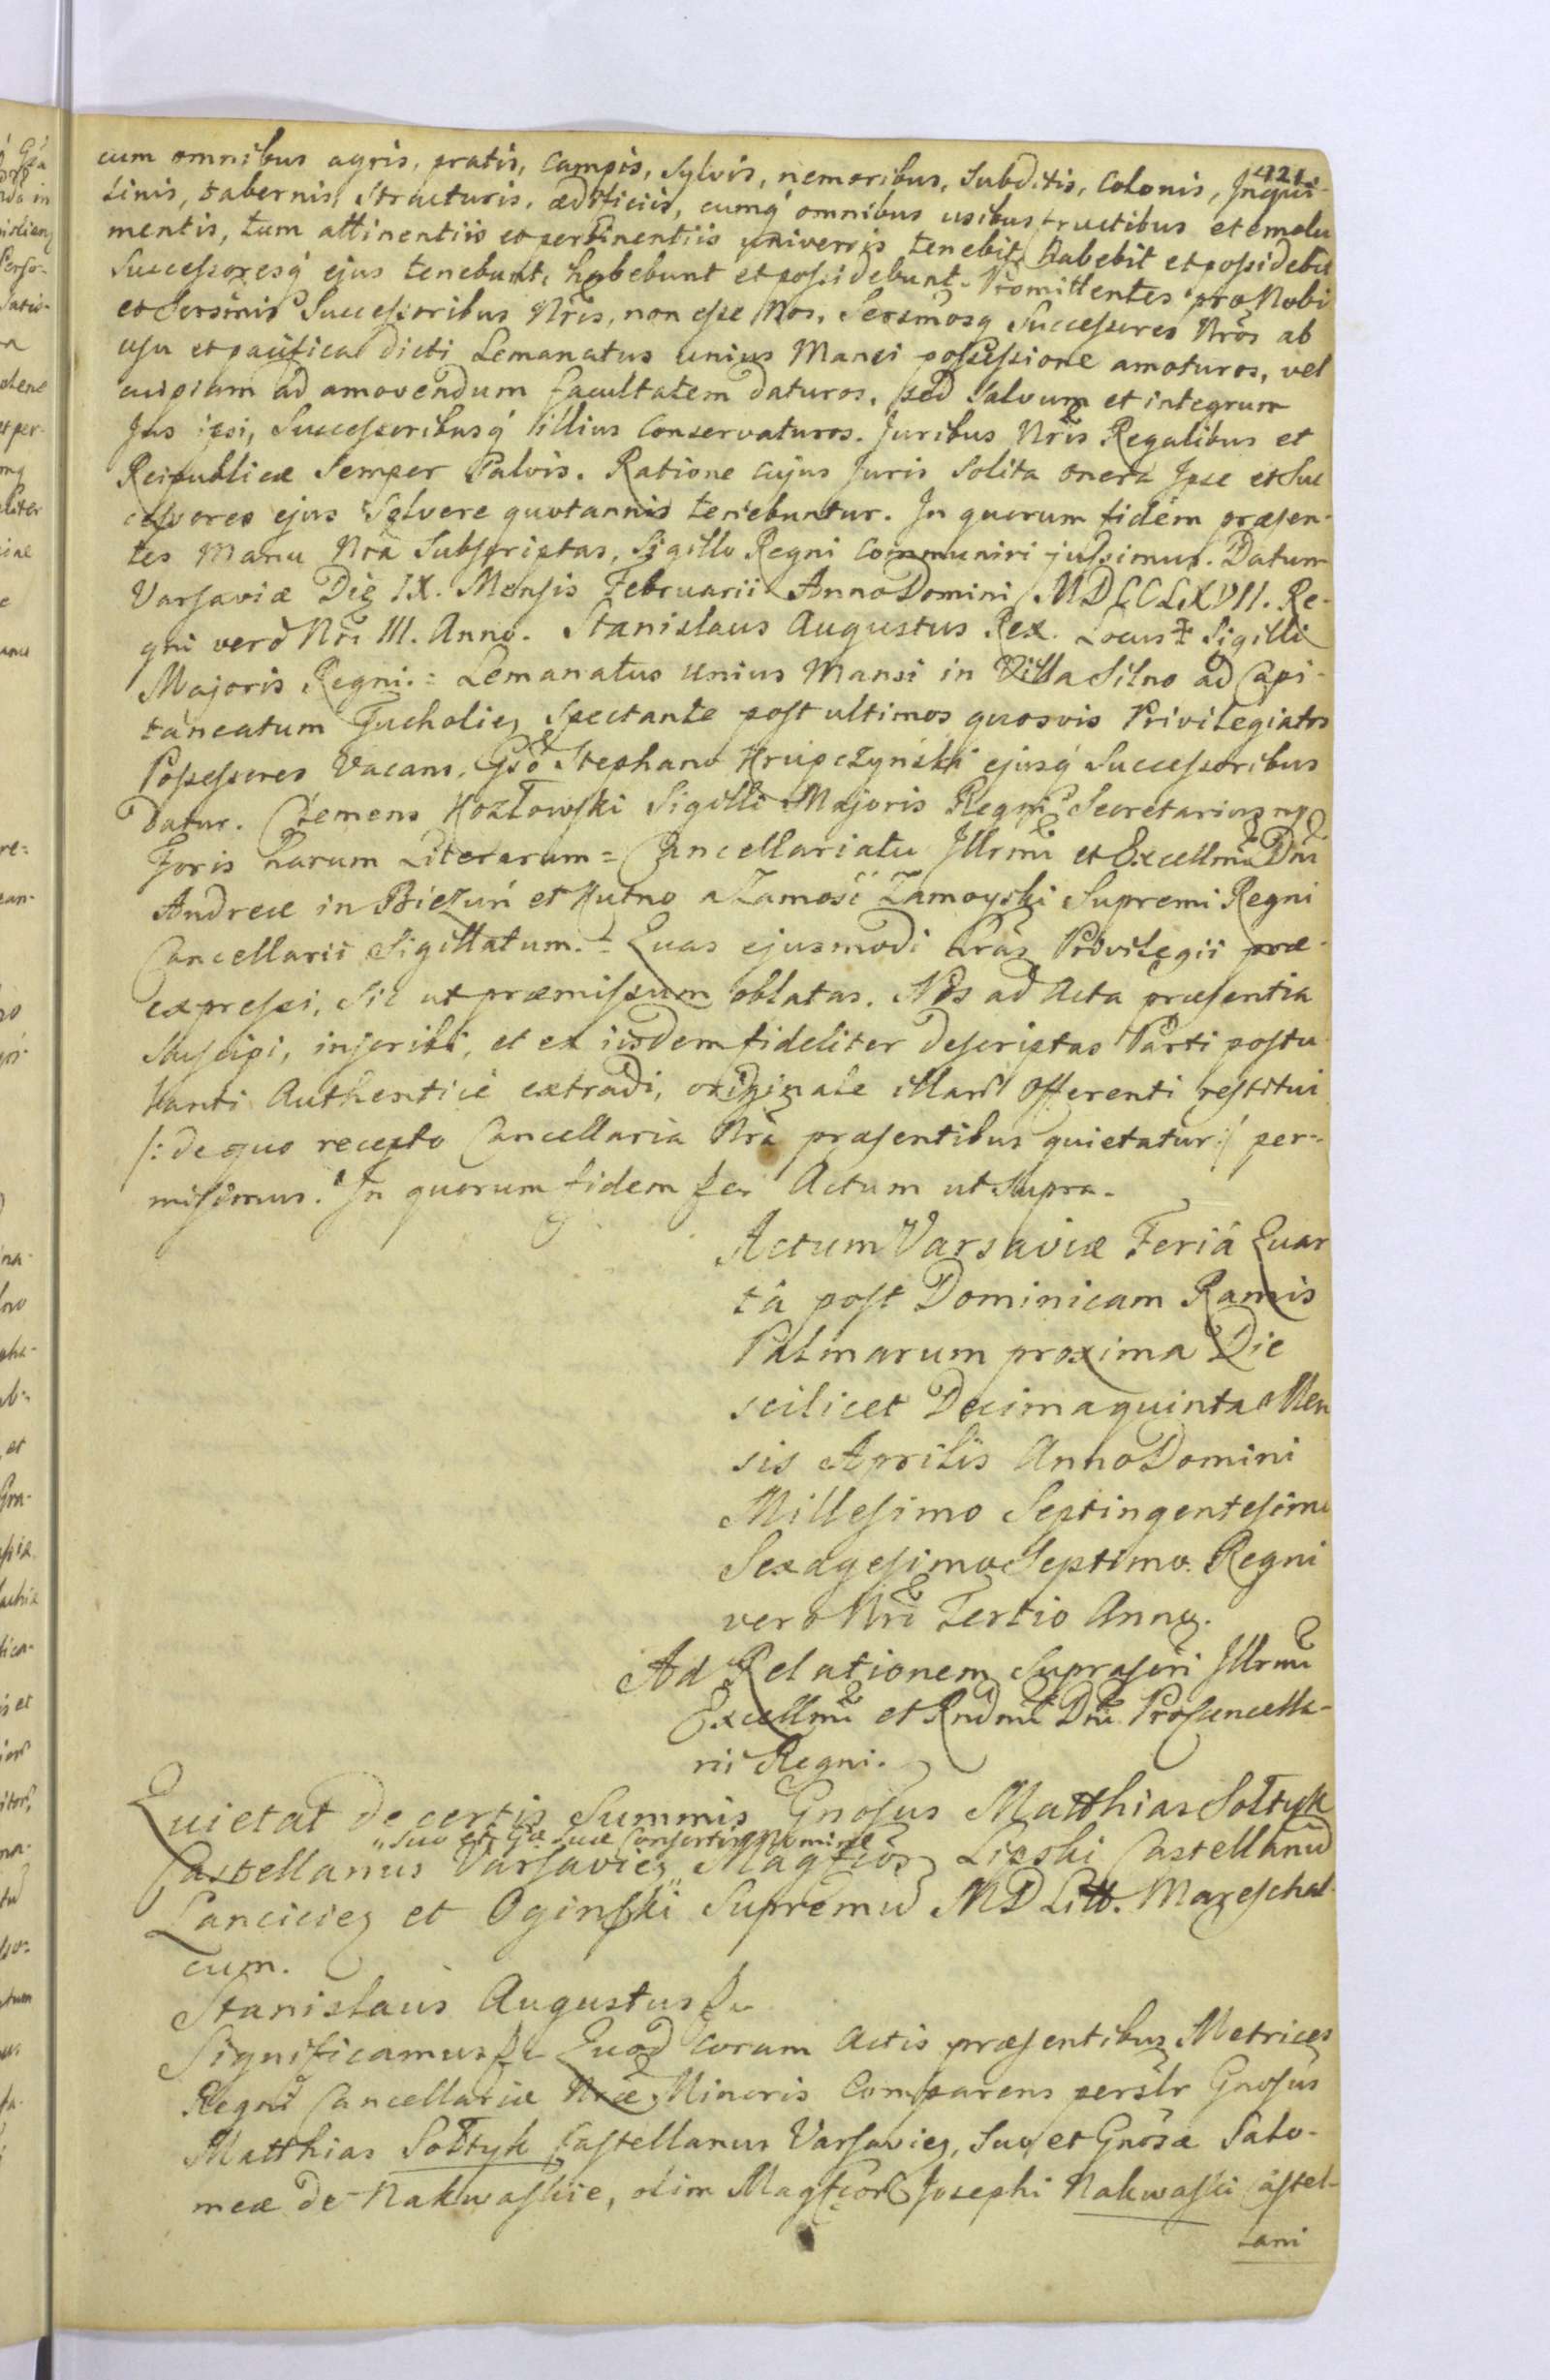 421.
cum omnibus agris, pratis, campis, Sylvis, nemoribus, Subditis, Colonis, Inqui-
linis, tabernis, Structuris, ædificiis, cumq́ omnibus usibus fructibus et emolu
mentis, tum attinentiis et pertinentiis universis tenebit, habebit et possidebit
Successoresq́ ejus tenebunt, habebunt et possidebunt. Promittentes pro Nobi
et Sersmis Successoribus Nris, non esse Nos, Sersmosq Successores Nros ab
usu et pacifica dicti Lemanatus unius Mansi possessione amoturos, vel
cuipiam ad amovendum facultatem daturos, sed Salvum et integrum
Jus ipsi, Successoribusq́ illius Conservaturos. Juribus Nris Regalibus et
Reipublicæ Semper Salvis. Ratione cujus Juris Solita onera Ipse et Suc
cessores ejus Solvere quotannis tenebuntur. In quorum fidem præsen-
tes Manu Nra Subscriptas, Sigillo Regni Communiri jussimus. Datum
Varsaviæ Die IX. Mensis Februarii Anno Domini MDCCLXVII. Re-
gni verò Nri III. Anno. Stanislaus Augustus Rex. Locus ‡ Sigilli
Majoris Regni. = Lemanatus Unius Mansi in Villa Silno ad Capi-
taneatum Tucholien Spectante post ultimos quosvis Privilegiatos
Possessores Vacans, Gso Stephano Krupczyński ejusq́ Successoribus
Datur. Clemens Kozłowski Sigilli Majoris Regni Secretarius mp
Foris harum Literarum = Cancellariatu Illrmi et Excellmi Dni
Andreæ in Bieżuń et Kutno a Zamość Zamoyski Supremi Regni
Cancellarii Sigillatum. = Quas ejusmodi Lras Privilegii præ-
expressi, Sic ut præmissum oblatas. Nos ad Acta præsentia
Suscipi, inscribi, et ex iisdem fideliter descriptas Parti postu
lanti Authenticè extradi, originale illarũ Offerenti restitui
/: de quo recepto Cancellaria Nra præsentibus quietatur :/ per-
misimus. In quorum fidem &c. Actum ut Supra.
Actum Varsaviæ Feriá Quar
tá post Dominicam Ramis
Palmarum proxima Die
scilicet Decimaquinta Men
sis Aprilis Anno Domini
Millesimo Septingentesimo
Sexagesimo Septimo. Regni
vero Nri Tertio Anno.
Ad Relationem Suprascri Illrmi
Excellmi et Rndmi Dni Procancella-
rii Regni.
Quietat de certis Summis Gnosus Matthias Sołtyk
„Suo et Gæ Suæ Consortis Nomine
Castellanus Varsavien „ Magfcos Lipski Castellanũ
Lancicien et Oginski Supremũ MD Litt. Mareschal-
cum.
Stanislaus Augustus &c
Significamus &c Quod Coram Actis præsentibus Metrices
Regni Cancellariæ Nræ Minoris Comparens perslr Gnosus
Matthias Sołtyk Castellanus Varsavien, Suo, et Gnosæ Salo-
meæ de Nakwaskie, olim Magfcor Josephi Nakwaski Castel-
lani